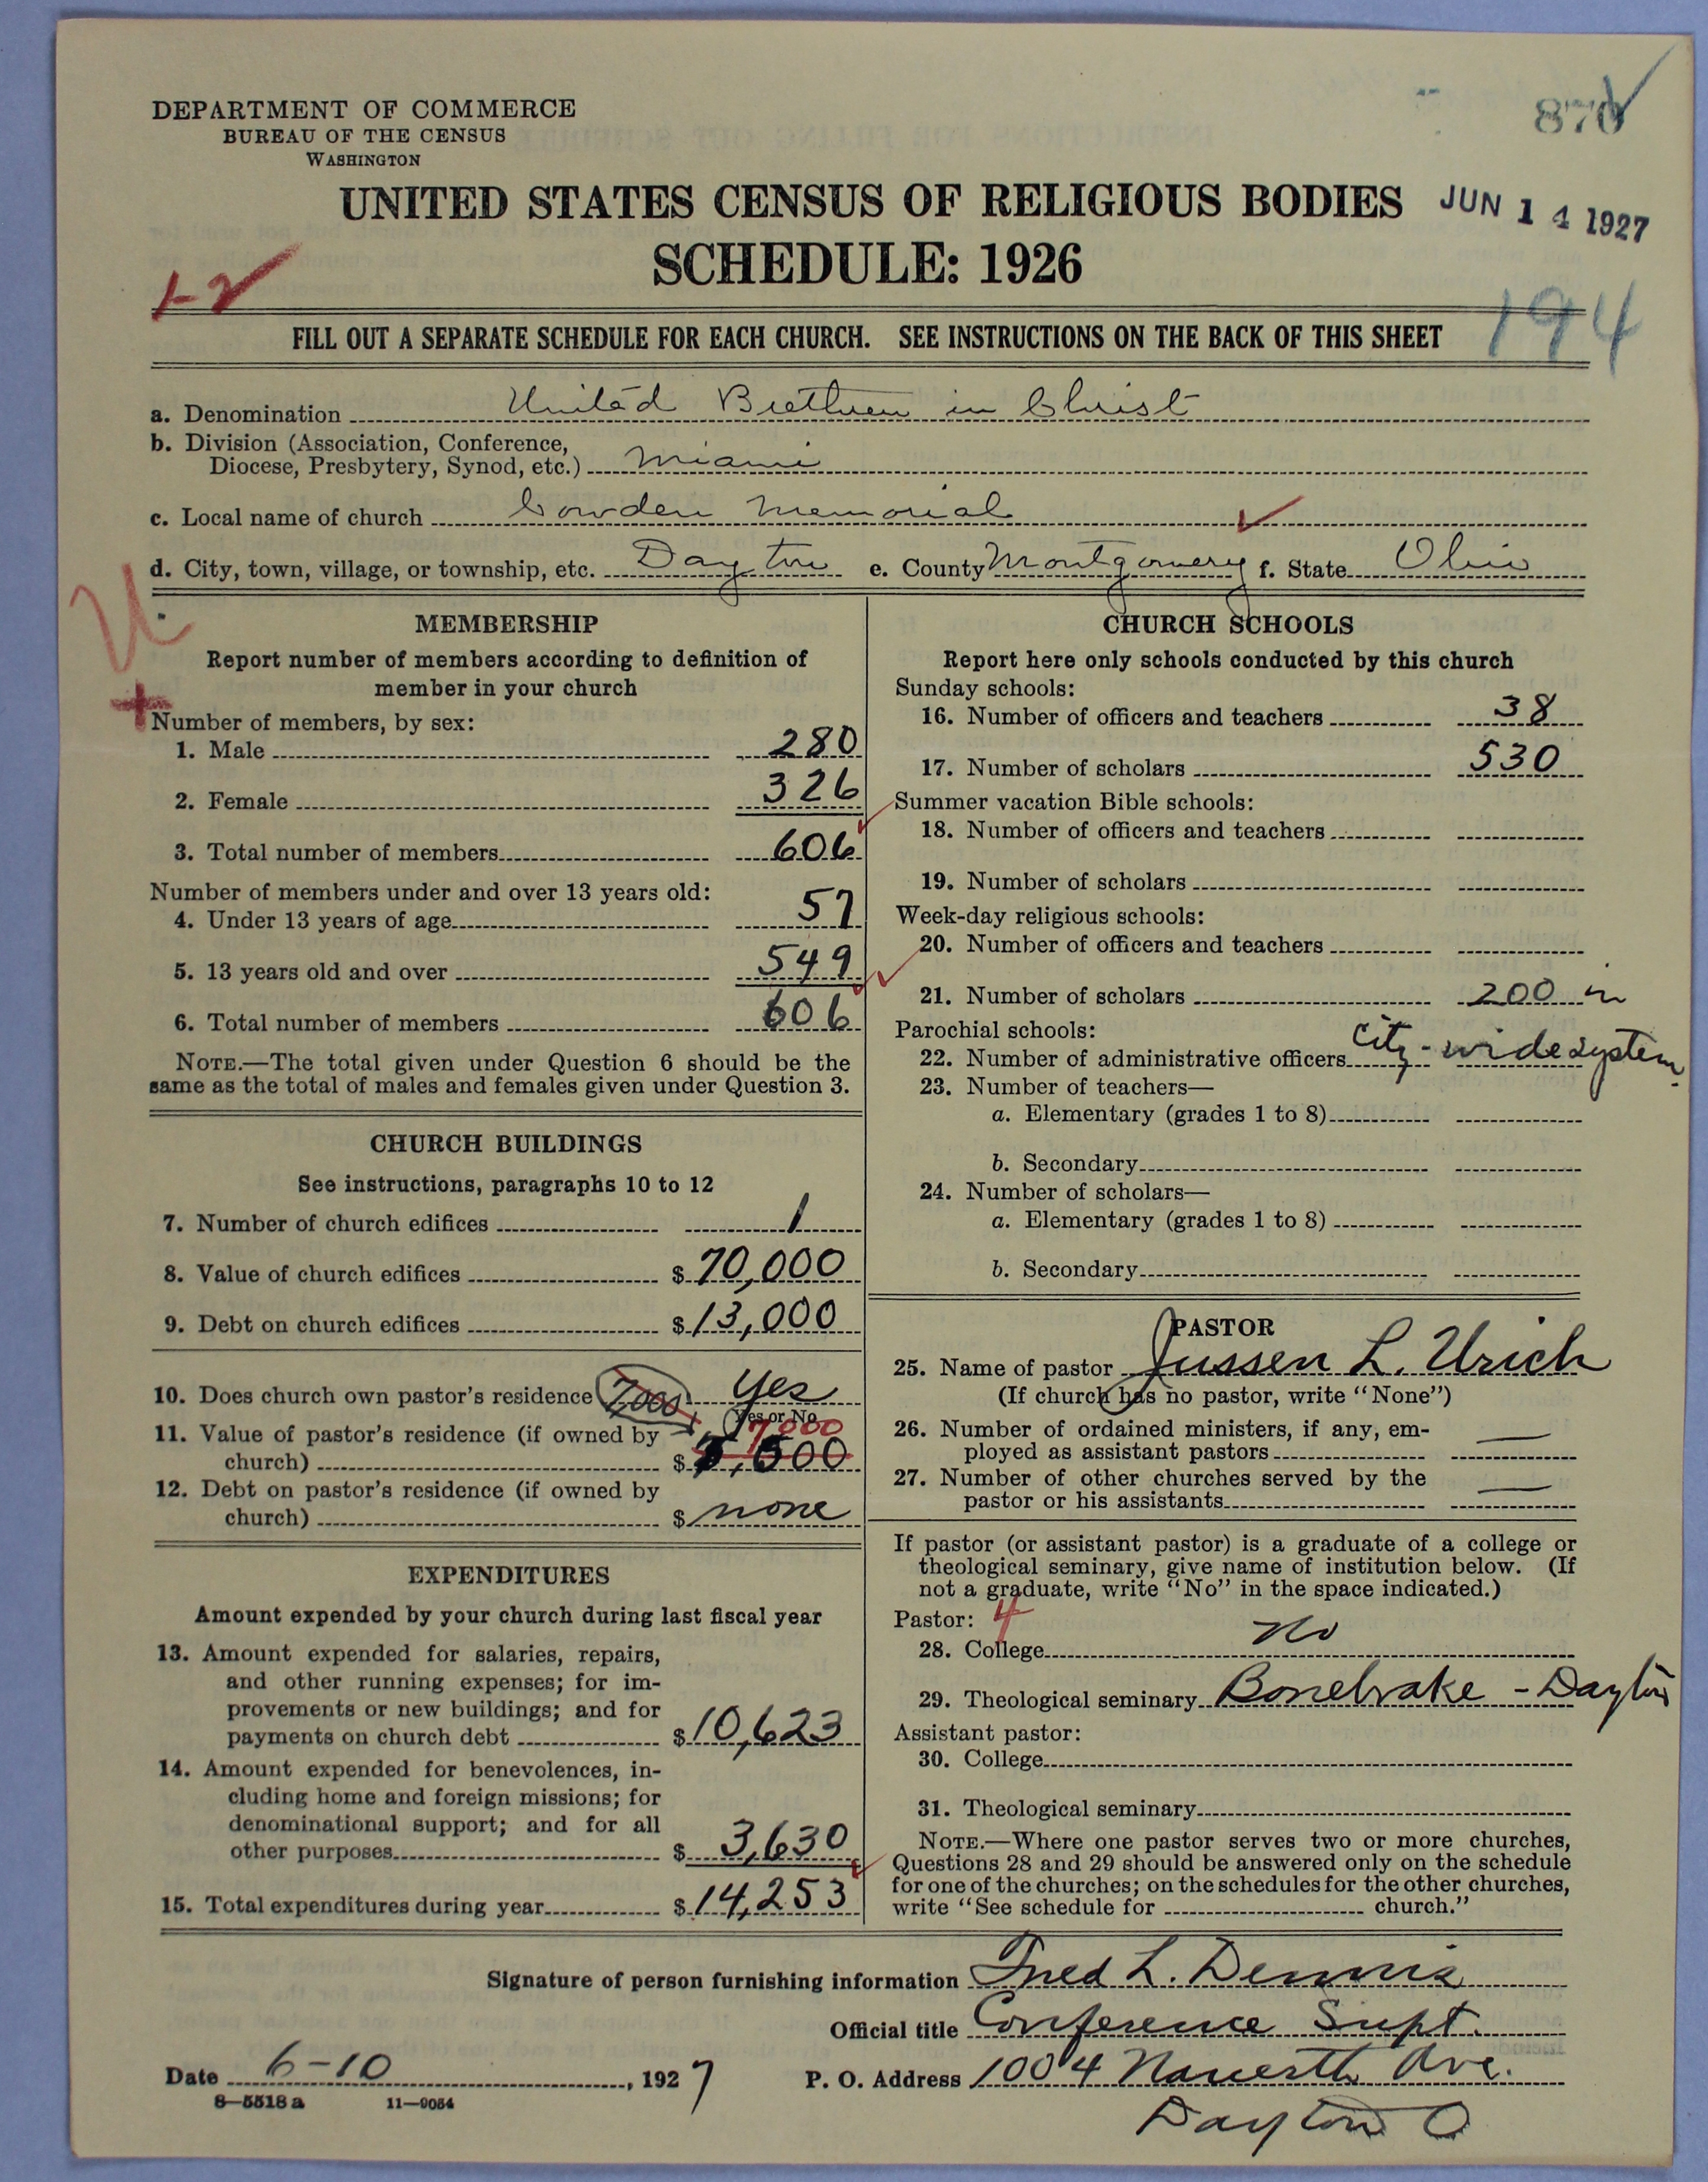 DEPARTMENT OF COMMERCE
BUREAU OF THE CENSUS
WASHINGTON
870
UNITED STATES CENSUS OF RELIGIOUS BODIES
JUN 14 1927
SCHEDULE: 1926
1-2
194
FILL OUT A SEPARATE SCHEDULE FOR EACH CHURCH. SEE INSTRUCTIONS ON THE BACK OF THIS SHEET
a. Denomination United Brethren in Christ
b. Division (Association, Conference,
Diocese, Presbytery, Synod, etc.) Miami
c. Local name of church Cowden Memorial
d. City, town, village, or township, etc. Dayton e. County Montgomery f. State Ohio
U
MEMBERSHIP
Report number of members according to definition of
member in your church
Number of members, by sex:
1. Male 280
2. Female 326
3. Total number of members 606
Number of members under and over 13 years old:
4. Under 13 years of age 57
5. 13 years old and over 549
6. Total number of members 606
NOTE.—The total given under Question 6 should be the
same as the total of males and females given under Question 3.
CHURCH BUILDINGS
See instructions, paragraphs 10 to 12
7. Number of church edifices 1
8. Value of church edifices $ 70,000
9. Debt on church edifices $ 13,000
10. Does church own pastor's residence 7,000 yes
Yes or No
11. Value of pastor's residence (if owned by 7000
church) $ ,500
12. Debt on pastor's residence (if owned by
church) $ none
EXPENDITURES
Amount expended by your church during last fiscal year
13. Amount expended for salaries, repairs,
and other running expenses; for im-
provements or new buildings; and for
payments on church debt $ 10,623
14. Amount expended for benevolences, in-
cluding home and foreign missions; for
denominational support; and for all
other purposes $ 3,630
15. Total expenditures during year $ 14,253
CHURCH SCHOOLS
Report here only schools conducted by this church
Sunday schools:
16. Number of officers and teachers 38
17. Number of scholars 530
Summer vacation Bible schools:
18. Number of officers and teachers
19. Number of scholars
Week-day religious schools:
20. Number of officers and teachers
21. Number of scholars 200 in
Parochial schools: city-wide system.
22. Number of administrative officers
23. Number of teachers—
a. Elementary (grades 1 to 8)
b. Secondary
24. Number of scholars—
a. Elementary (grades 1 to 8)
b. Secondary
PASTOR
25. Name of pastor Jussen L. Urich
(If church has no pastor, write "None")
26. Number of ordained ministers, if any, em-
ployed as assistant pastors —
27. Number of other churches served by the
pastor or his assistants —
If pastor (or assistant pastor) is a graduate of a college or
theological seminary, give name of institution below. (If
not a graduate, write "No" in the space indicated.)
Pastor: 4
28. College No
29. Theological seminary Bonebrake - Dayton
Assistant pastor:
30. College
31. Theological seminary
NOTE.—Where one pastor serves two or more churches,
Questions 28 and 29 should be answered only on the schedule
for one of the churches; on the schedules for the other churches,
write "See schedule for church."
Signature of person furnishing information Fred L. Dennis
Official title Conference Supt.
Date 6-10, 1927
P. O. Address 1004 Ave.
Dayton O
8—5518 a 11—9054